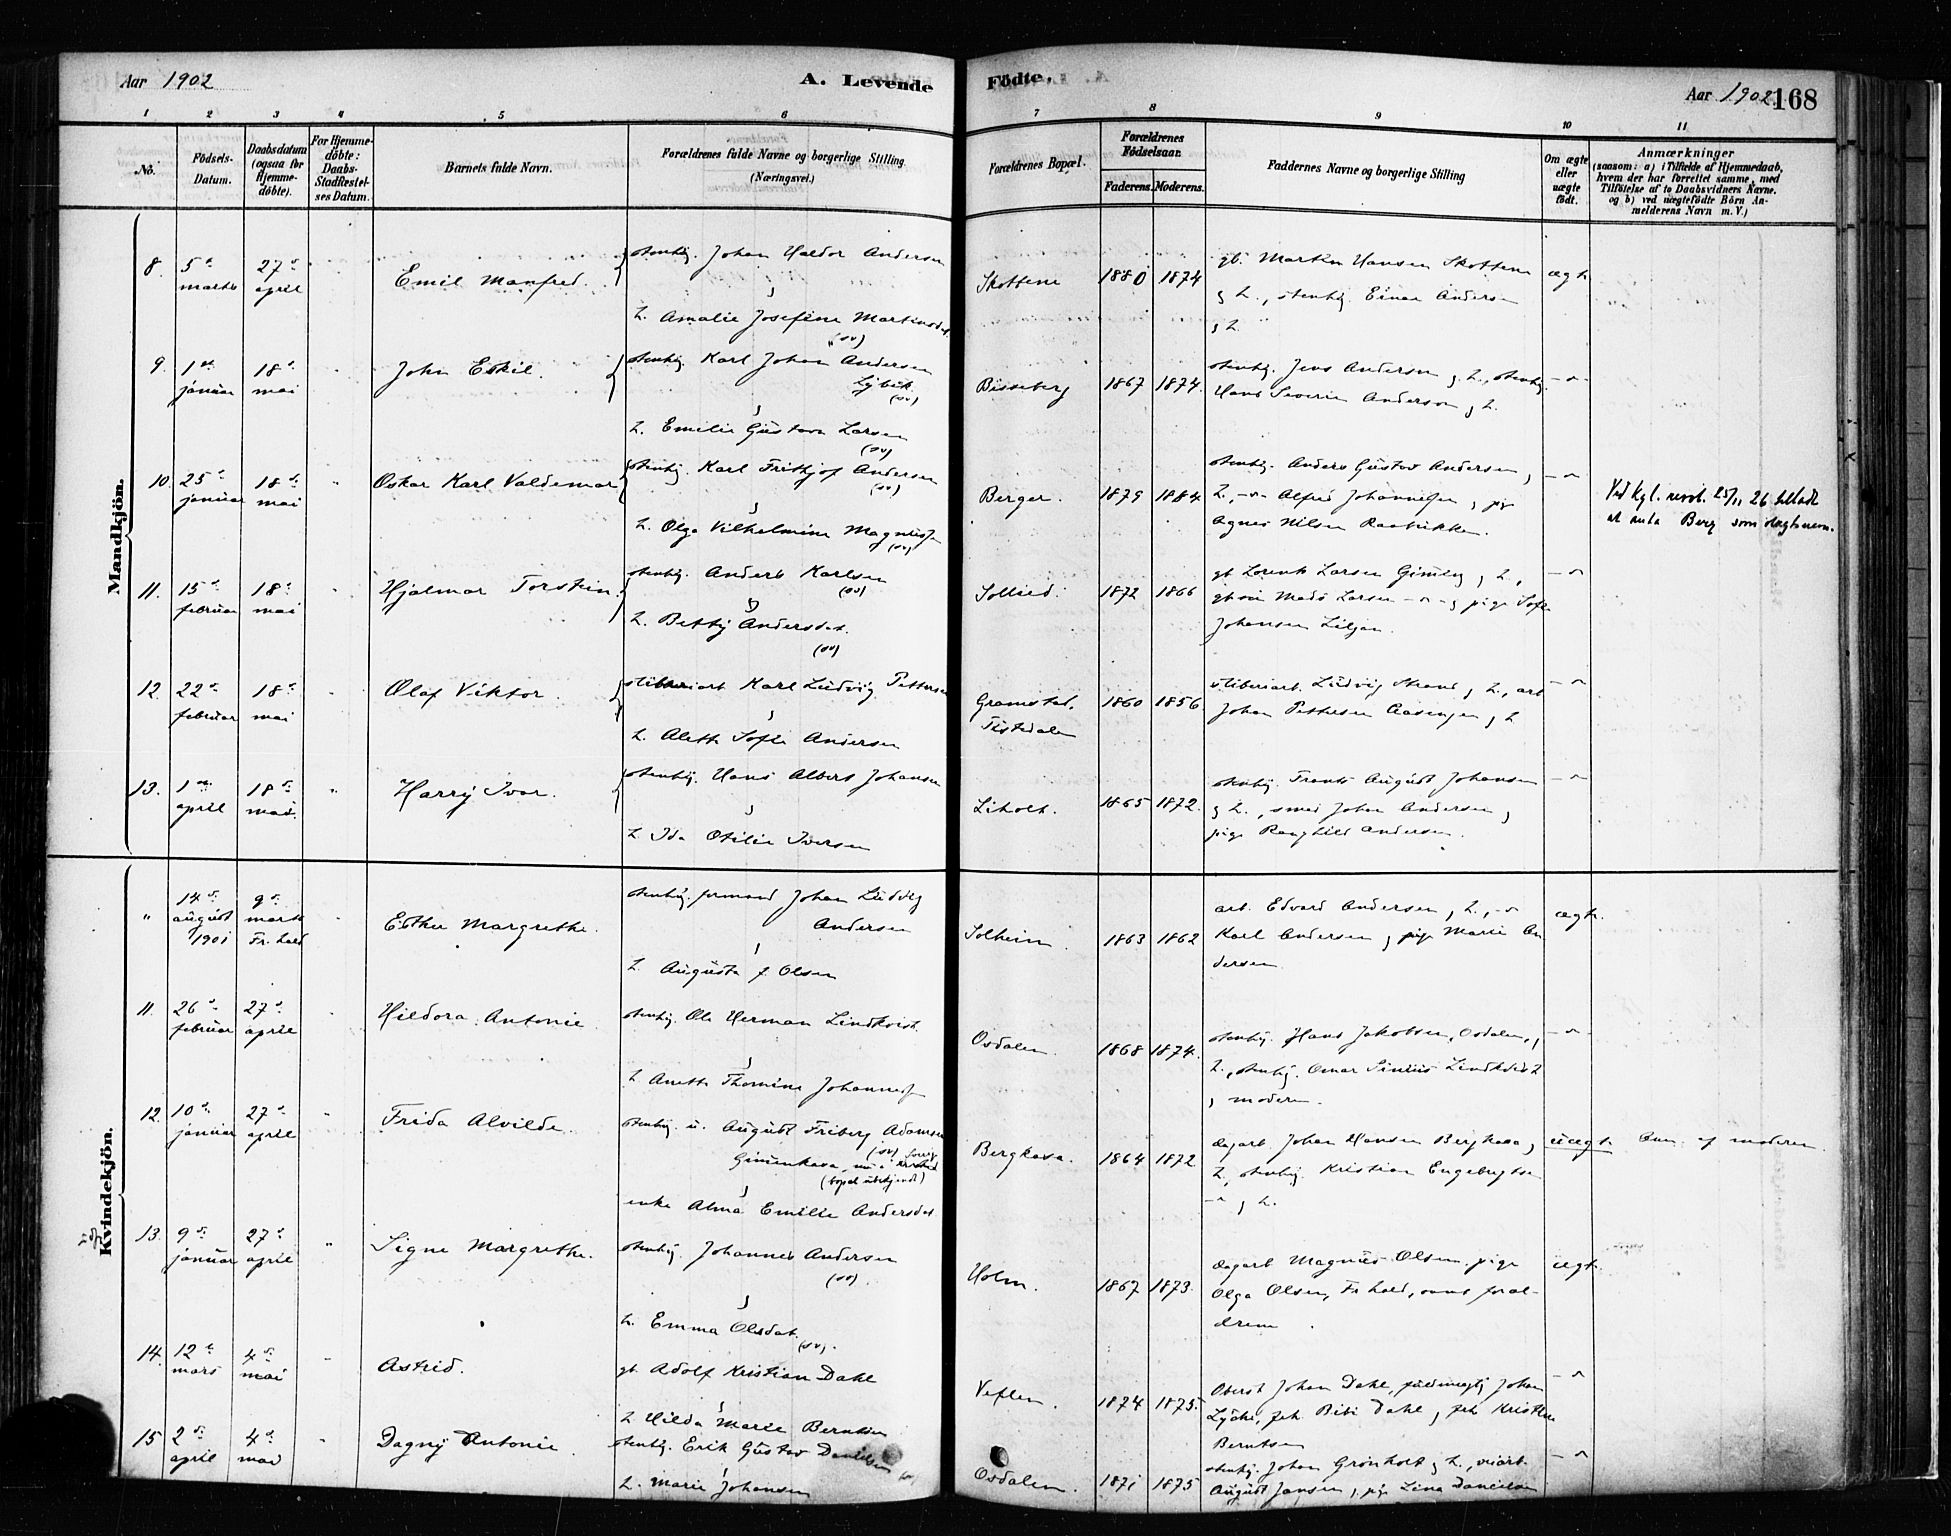 Aar 1902
A. Levende
Födte.
Aar 1902
168
1 2 3 4 5 6 7 8 9 10 11
No.
Födsels-Datum.
Daabsdatum (ogsaa for Hjemme-döbte).
For Hjemme-döbte: Daabs-Stadfæstel-ses Datum.
Barnets fulde Navn.
Forældrenes fulde Navne og borgerlige Stilling.
(Næringsvei.)
Forældrenes Bopæl.
Forældrenes Födselsaar.
Faderens. Moderens.
Faddernes Navne og borgerlige Stilling
Om ægte eller uægte født.
Anmærkninger
(saasom: a) i Tilfælde af Hjemmedaab, hvem der har forrettet samme, med Tilföielse af to Daabsvidners Navne. og b) ved uægtefödte Börn An-melderens Navn m. V.)
Mandkjön.
8. 5te marts 27de april
Emil Manfred.
stenhg. Johan Haldor Andersen
&
h. Amalie Josefine Martinsdat.
(sv)
Skottene 1880 1874
gb. Martin Hansen Skottene
& h., stenhg. Einar Andersen
& h.
ægte
9. 1ste januar 18de mai
John Eskil.
stenhg. Karl Johan Andersen
Lybeck
(sv)
&
h. Emilie Gustava Larsen
(sv)
Bisseberg 1867 1874.
stenhg. Jens Andersen & h., stenhg.
Hans Severin Andersen & h.
10. 25de januar 18de mai
Oskar Karl Valdemar
stenhg. Karl Frithjof Andersen
(sv)
&
h. Olga Vilhelmine Magnussen
(sv)
Berger. 1879 1884
stenhg. Anders Gustav Andersen &
h., -"- Alfred Johannessen & pige
Agnes Nilsen
Ved kgl. resol. 25/11 26 tilladt
at anta Berg som slegtsnavn.
11. 15de februar 18de mai
Hjalmar Torstein.
stenhg. Anders Karlsen
(sv)
&
h. Betty Andersdat.
(sv)
Sollied. 1872 1866
gb. Lorents Larsen Gimling & h.,
Mads Larsen -"- & pige Sofie
Johansen Liljan.
12. 22de februar 18de mai
Olaf Viktor.
sliberiarb. Karl Ludvig Pettersen
&
h. Alette Sofie Andersen
Gramstad, Tistedalen 1860 1856
sliberiarb. Ludvig Strand & h., arb.
Johan Pettersen Aasengen & h
13. 1ste april 18de mai.
Harry Ivar.
stenhg. Hans Albert Johansen
&
h. Ida Otilie Iversen
Liholt. 1865 1872.
stenhg. Frants August Johansen
& h., smed Johan Andersen &
pige Ranghild Andersen.
Kvindekjön.
" 14de august 1901 9de marts Fr. hald
Esther Margrethe.
stenhg. formand Johan Ludvig
Andersen
&
h. Augusta f. Olsen
Solheim. 1863 1862
arb. Edvard Andersen & h., -"-
Karl Andersen & pige Marie An
dersen.
ægte.
11. 26de februar 27de april
Hildora Antonie
stenhg. Ole Herman Lindkvist
&
h Anette Thomine Johannesen
Osdalen. 1868 1874.
stenhg. Hans Jakobsen, Osdalen, &
h., stenhg. Omar Sinius Lindkvist
& moderen.
12. 10de januar 27de april
Frida Alvilde.
stenhg. u. August Friberg Adamsen
(sv)
(bopæl ubekjendt)
&
enke Alma Emilie Andersdat.
Bergkasa. 1864 1872
dagarb. Johan Hansen Bergkasa &
h, stenhg. Kristian Engebrigtsen
-"- & h.
uægte. Anm. af moderen.
13. 9de januar 27de april
Signe Margrethe.
stenhg. Johannes Andersen
(sv).
&
h. Emma Olsdat.
(sv).
Holm. 1867 1873.
dagarb Magnus Olsen, pige
Olga Olsen, Fr. hald, samt foræl-
drene.
ægte
14. 12te mars 4de mai
Astrid.
gb. Adolf Kristian Dahl
&
h Hilda Marie Berntsen
Veflen. 1874 1875.
Oberst Johan Dahl, fuldmægtig Johan
Lyche, frk. Bibi Dahl & frk Kristine
Berntsen
15 2de april 4de mai
Dagny Antonie.
stenhg. Erik Gustav Danielsen
&
h. Marie Johansen
Osdalen. 1871 1875
stenhg. Johan Grönholt & h.,
August Jansen & pige Lina Danielsen